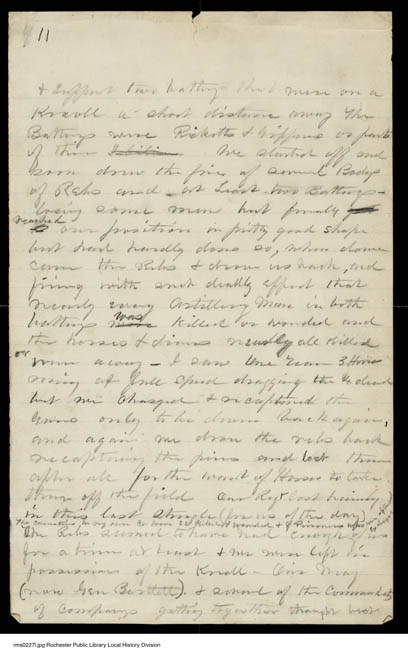 11
& Support two batterys that were on a
Knoll a short distance away The
Batterys were Ricketts & Griffins or parts
of them We started off and
soon drew the fire of several Bodys
of Rebs and at Least two Batterys -
losing some men but finally
reached our position in pretty good shape
but had hardly done so, when down
came the Rebs & drove us back, and
firing with such deadly effect that
nearly every Artillery Man in both
batterys was Killed or wounded and
the horses & drivers nearly all Killed
or run away - I saw One Team 3 Horses
runing at full speed dragging the dead
but we charged & recaptured the
Guns only to be driven back again,
and again we drove the rebs back
recapturing the pieces and lost them
after all for the want of Horses to
them off the field Our Regt Lost heavily
in this last struggle (for us of the day)
The casualties in my own Co were Killed & wounded, & Prisoners
The Rebs seemed to have had enough of us
for a time at least & we were left in
possession of the Knoll - Our Maj
(now Gen Bartlett). & several of the Commandants
of Companys getting together thought best
rms0227l.jpg Rochester Public Library Local History Division